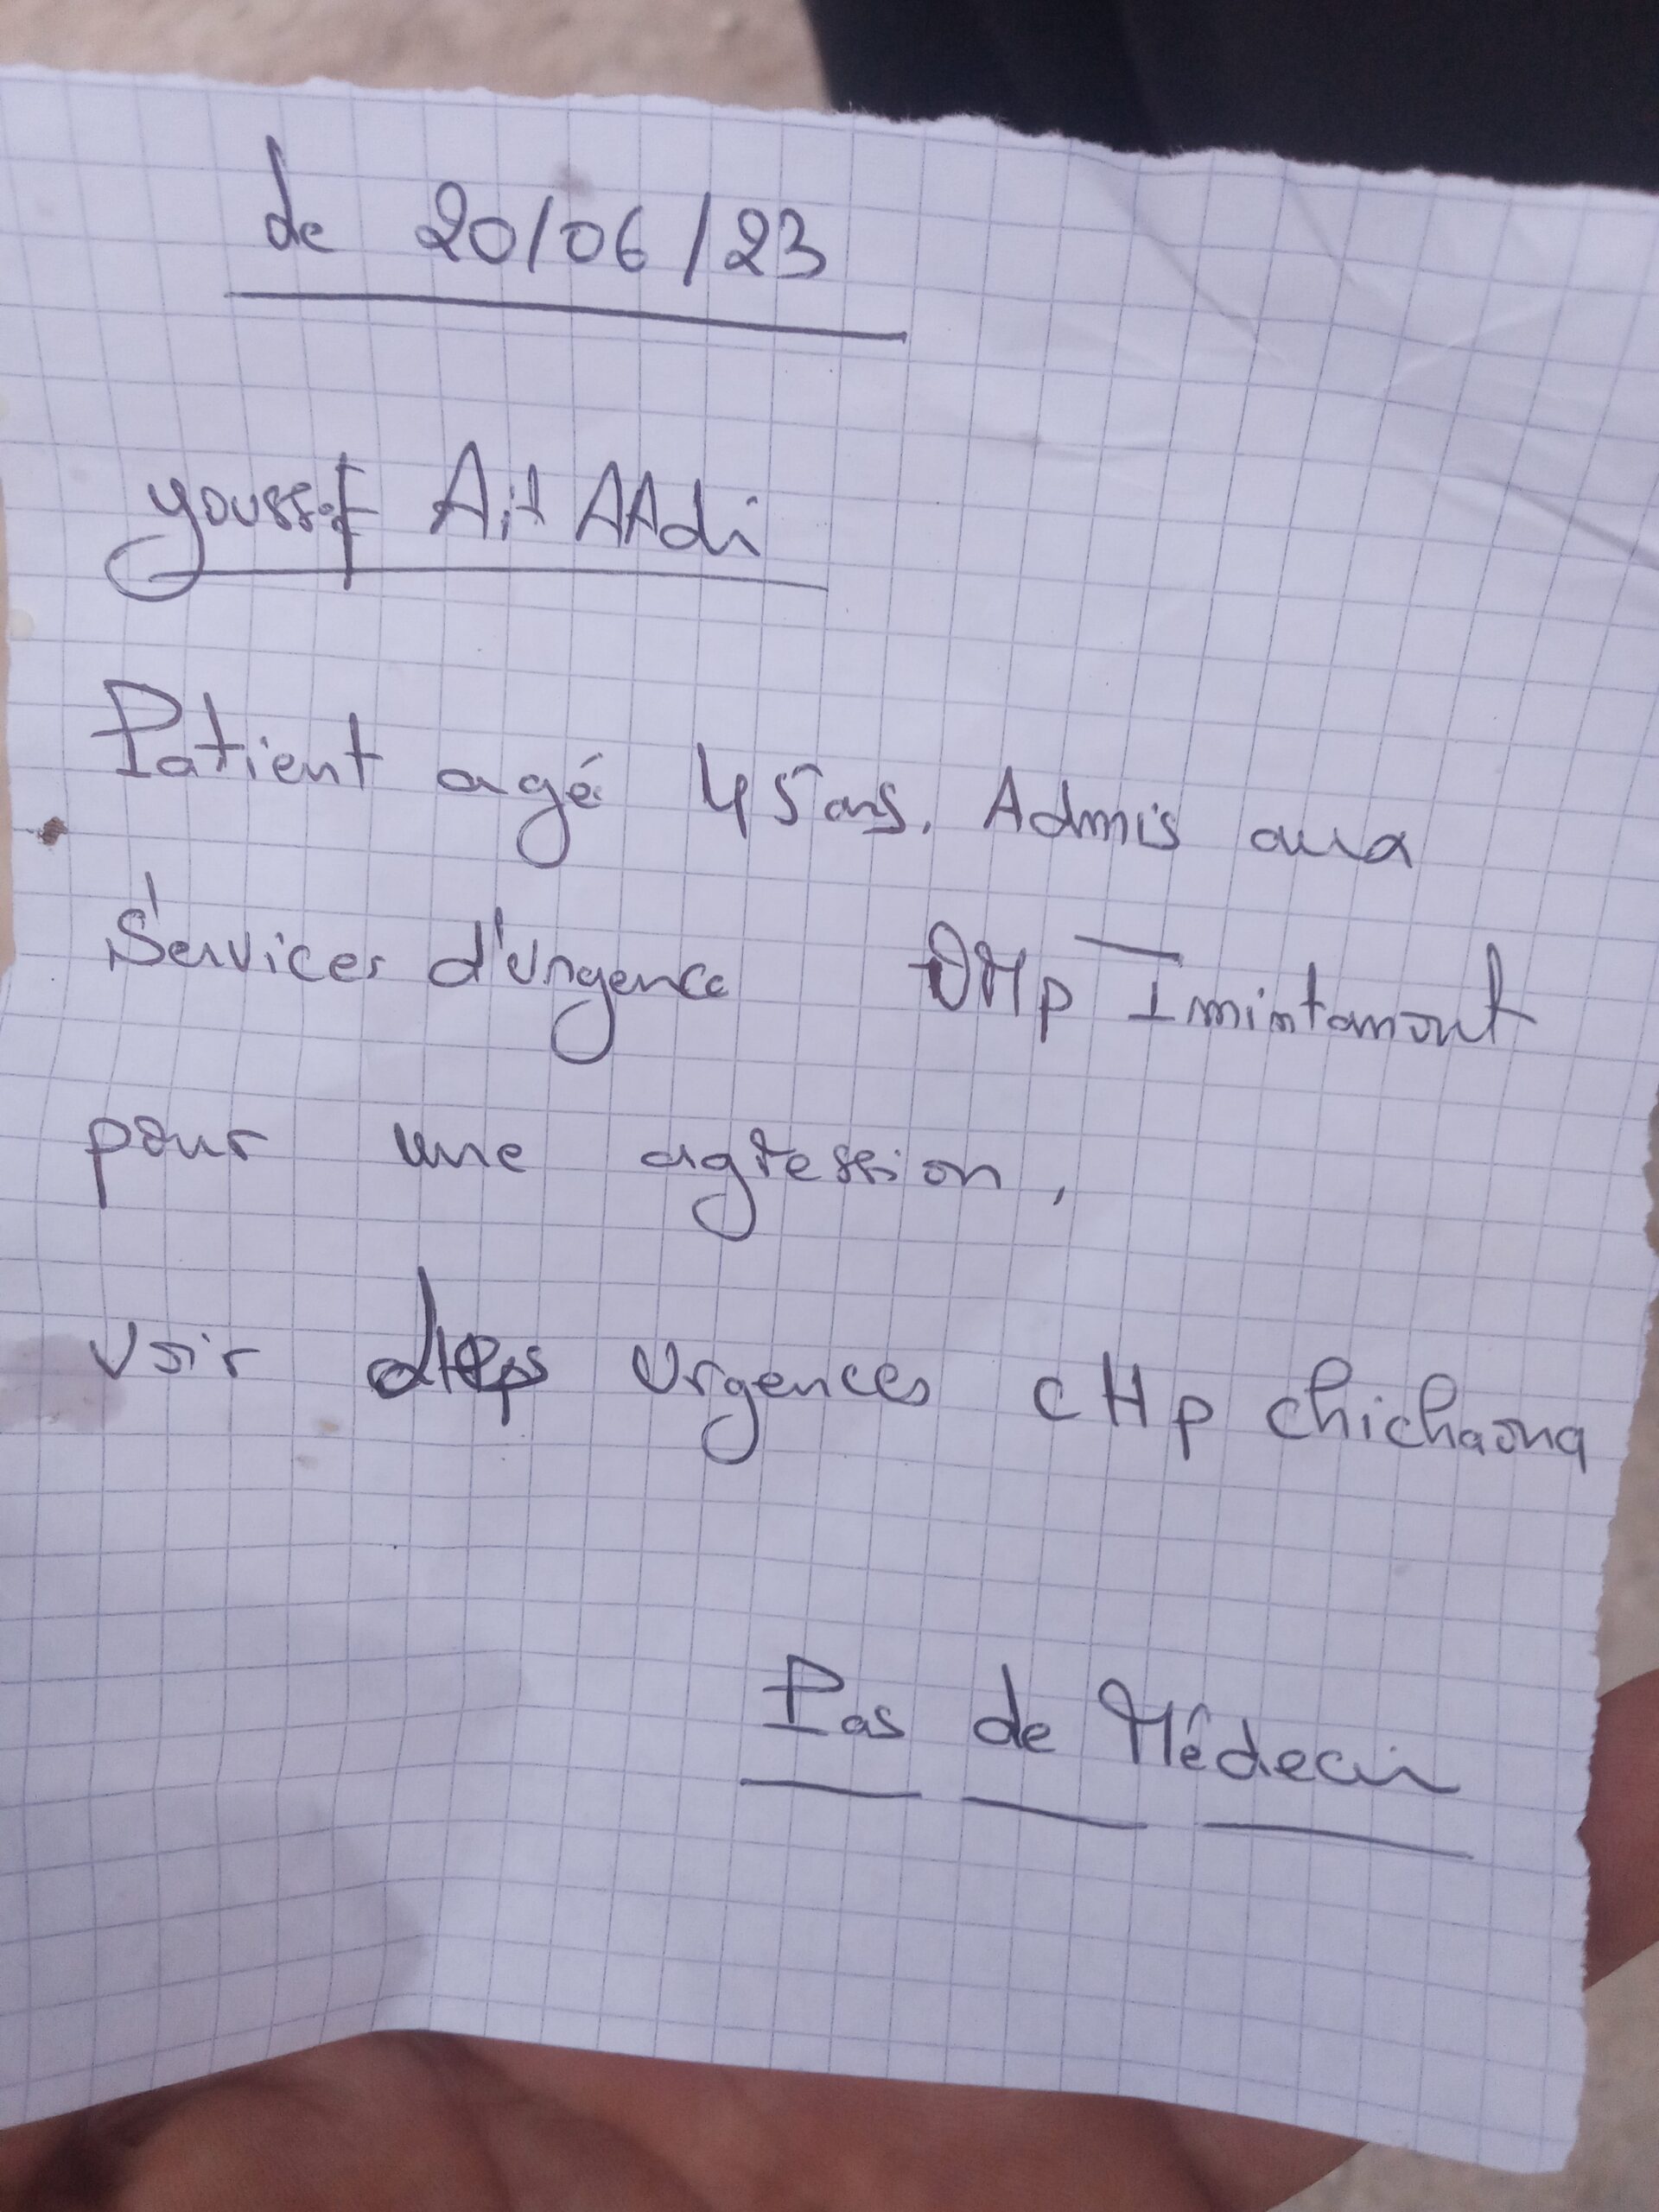 de 20/06/23
youssef Ait AAdi
Patient agé 45 ans. Admis aux
Services d'urgence Imintanout
pour une agression,
voir urgences CHP chichaoua
Pas de Médecin